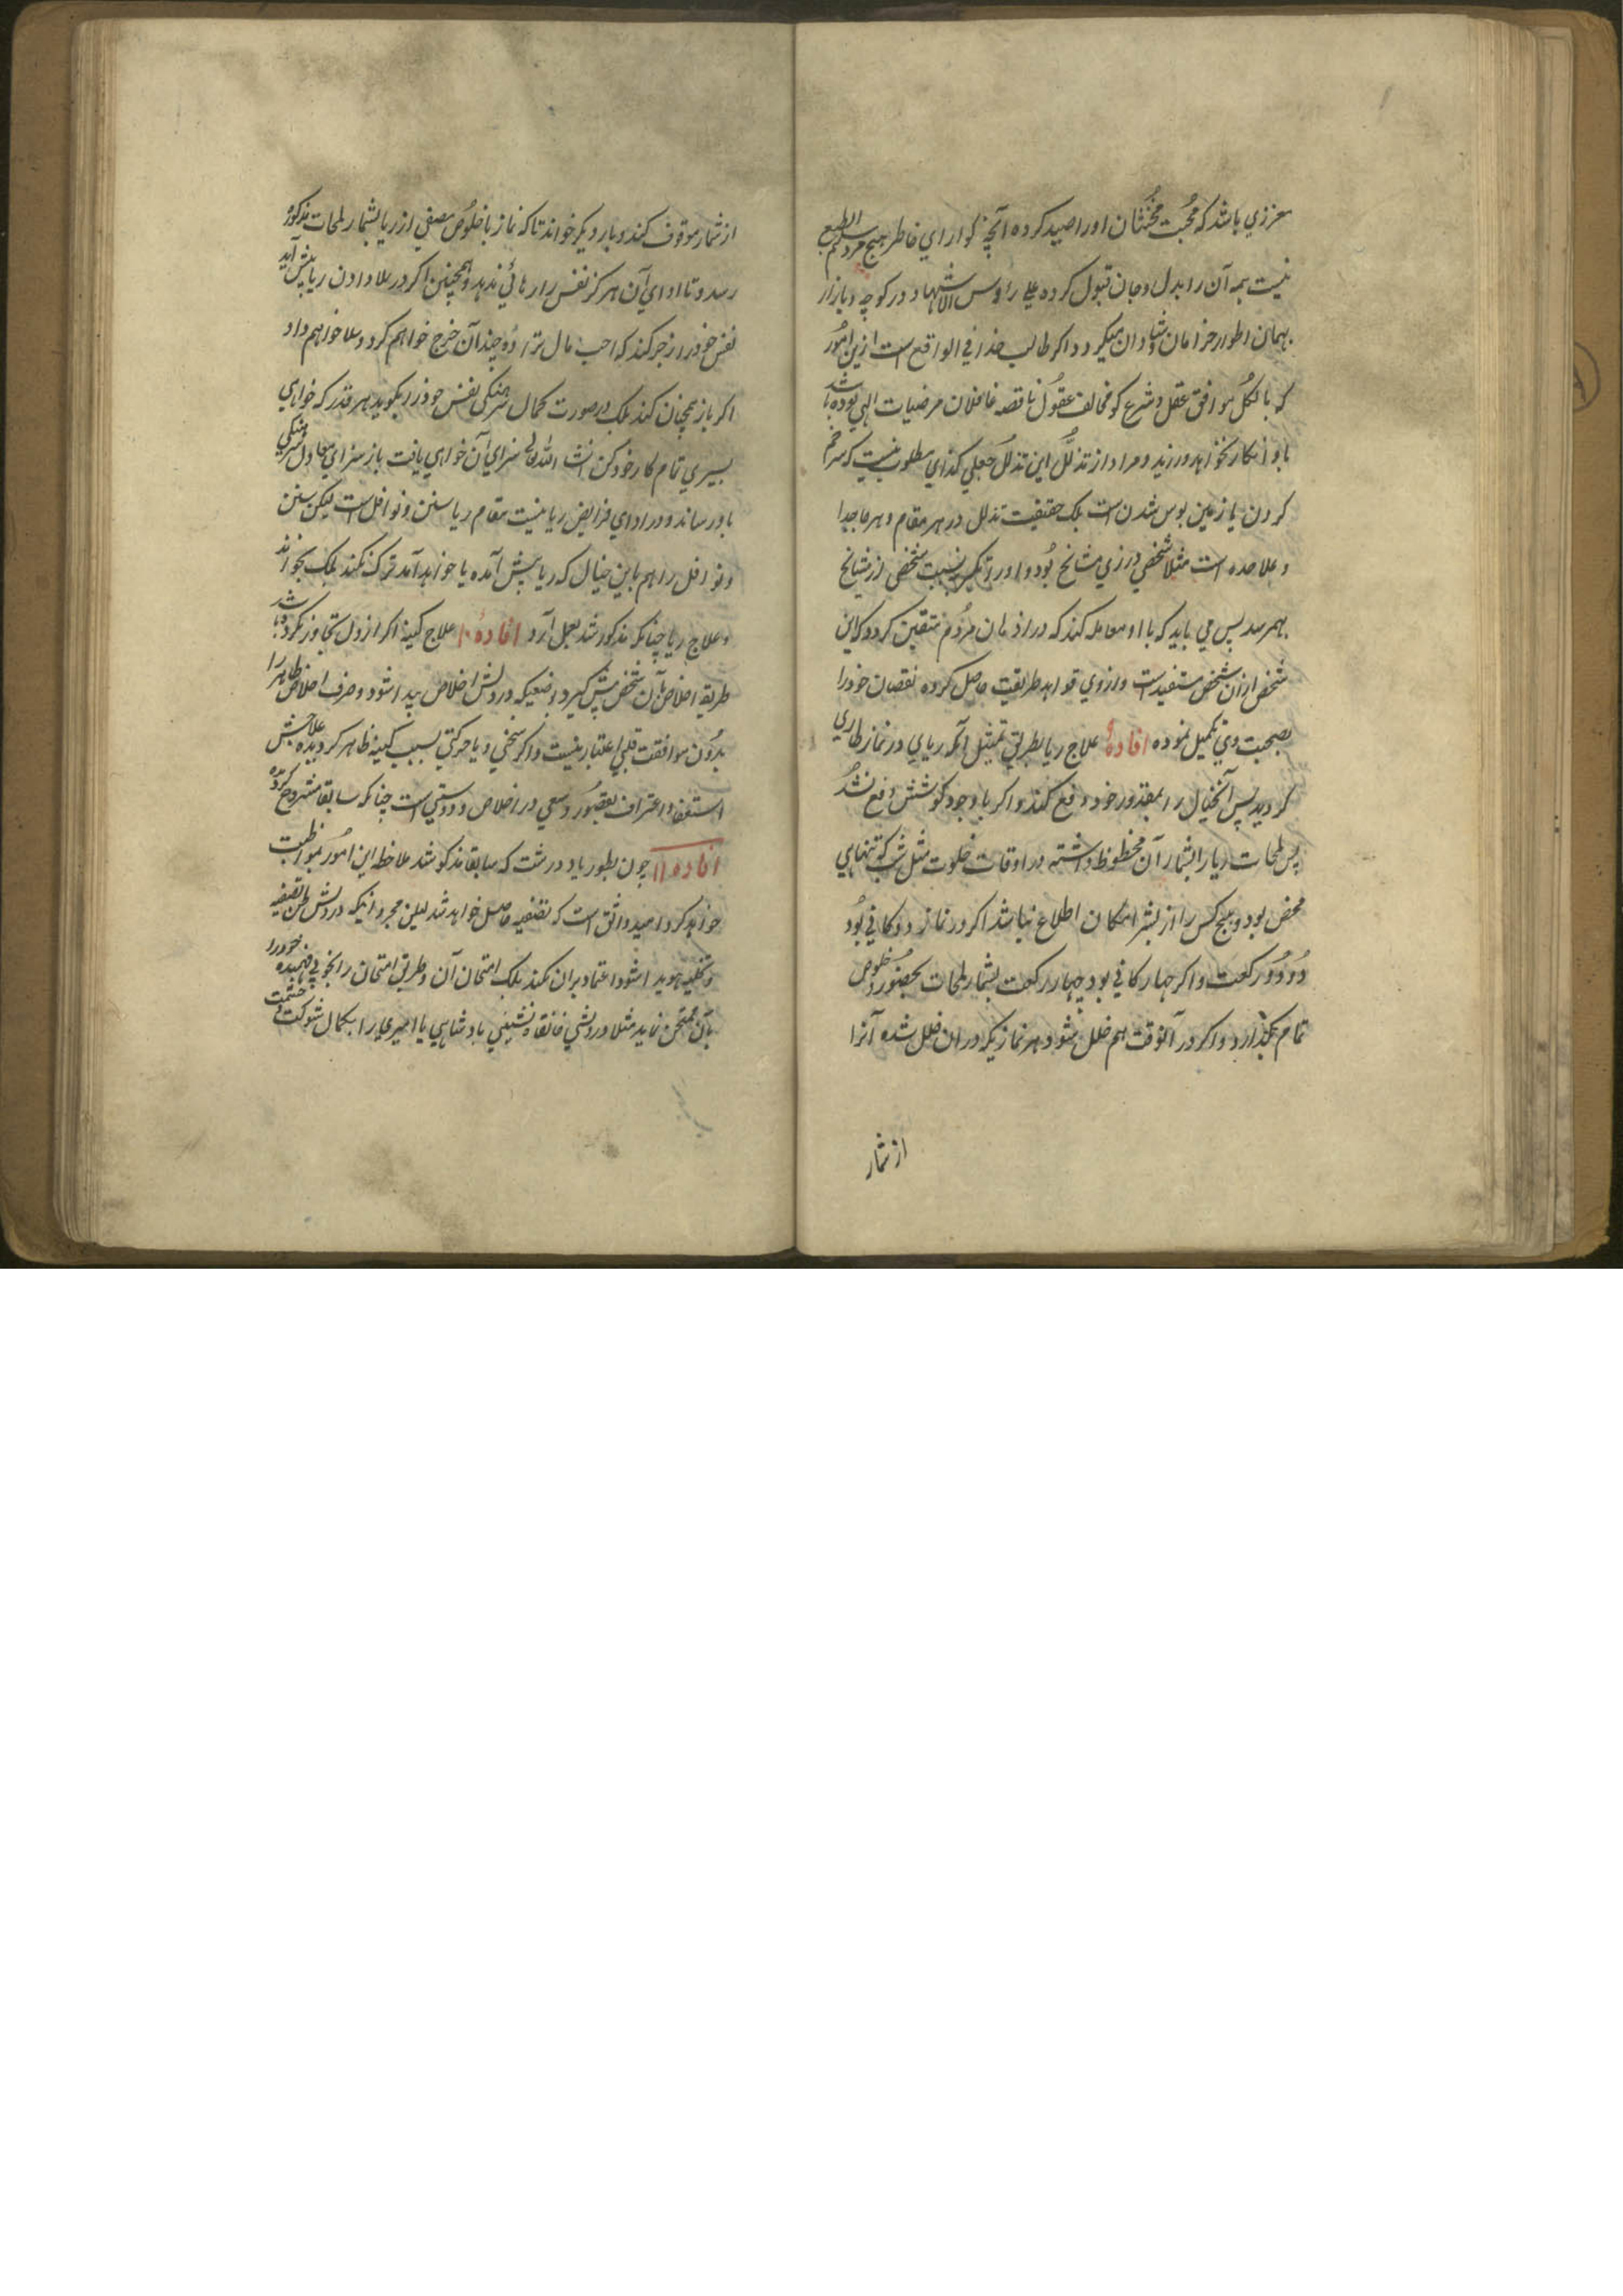 معززي باشد که محبت مخنثان او را صید کرده آنچه گوارای خاطر هیچ مردم سلیم الطبع
نیست همه آن را بدل و جان قبول کرده علی رؤس الاشهاد در کوچه و بازار
بهمان اطوار خرامان و شادان میگردد اگر طالب خدا فی الواقع است ازین امور
که بالکل موافق عقل و شرع گو مخالف عقول ناقصه غافلان مرضیات الهی بوده باشد
با و انکار نخواهد ورزید و مراد از تذلل این تذلل جعلی کذای مطلوب نیست که سر خم
کردن یا زمین بوس شدن است بلکه حقیقت تذلل در هر مقام و هر جا جدا
و علاحده است مثلا شخصی در زی مشائخ بود و او را تکبر بنسبت شخصی از مشائخ
بهمرسد پس می باید که با او معامله کند که در اذهان مردم متیقن گردد که این
شخص ازان شخص مستفید است و از وی فواید طریقت حاصل کرده نقصان خود را
بصحبت وی تکمیل نموده افاده علاج ریا بطریق تمثیل آنکه ریای در نماز طاری
گردید پس آنخیال را بمقدور خود دفع کند و اگر با وجود کوشش دفع نشد
پس لمحات ریا را بشمار آن محظوظ داشته در اوقات خلوت مثل شب که تنهایی
محض بود و هیچ کس را از بشر امکان اطلاع نباشد اگر در نماز دوگانی بود
دو دو رکعت و اگر چهارگانی بود چهار رکعت بشمار لمحات بحضور و خلوص
تمام بگذارد و اگر در آنوقت هم خلل شود هر نمازیکه دران خلل شده آنرا
از شمار
از شمار موقوف کند و بار دیگر خواند تا که نماز با خلوص مصفی از ریا بشمار لمحات مذکوره
رسد و تا ادای آن هرگز نفس را رهائی ندهد و همچنین اگر در علا دادن ریا پیش آید
نفس خود را زجر کند که احب مال ترا ده چندان خرج خواهم کرد و علا خواهم داد
اگر باز همچنان کند بلکه درصورت کمال سرهنگی نفس خود را بگوید هر قدر که خواهی
بسیری تمام کار خود کن انشاء الله تعالی سزای آن خواهی یافت باز سزای معادل سرهنگی
باو رساند و در ادای فرایض ریا نیست مقام ریا سنن و نوافل است لیکن سنن
و نوافل را هم باین خیال که ریا پیش آمده یا خواهد آمد ترک نکند بلکه بخواند
و علاج ریا چنانکه مذکور شد بعمل آرد افاده ۱۰ علاج کینه اگر از دل تجاوز نکرده باشد
طریقه اخلاص بآن شخص پیش گیرد بوضعیکه در دلش اخلاص پیدا شود و صرف اخلاص ظاهر را
بدون موافقت قلبی اعتبار نیست و اگر سخنی و یا حرکتی بسبب کینه ظاهر گردیده علاجش
استغفار و اعتراف بقصور و سعی در اخلاص و دوستی است چنانکه سابقا مشروح گردیده
افاده ۱۱ چون بطور یاد درشت که سابقا مذکور شد ملاحظه این امور بمواظبت
خواهد کرد امید واثق است که تصفیه حاصل خواهد شد لیکن مجرد اینکه در دلش ظن تصفیه
و تخلیه هویدا شود اعتماد بران نکند بلکه امتحان آن و طریق امتحان را بخوبی فهمیده خود را
بآن ممتحن نماید مثلا درویشی خانقاه نشینی بادشاهی یا امیری را بکمال شوکت و حشمت